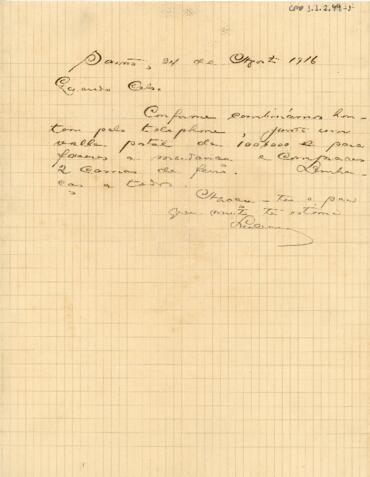 CPV 1.1.2.49-1
24 de Agosto 1916
Querido
Conforme combinámos hon-
tem pelo telephone, junto um
valle postal de 100$000 é para
fazeres a mudança e comprares
2 camas de ferro. Lembran-
ças a todos.
Abraça-te o pae
que muito te estima